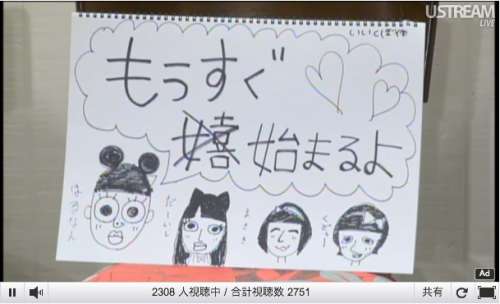 USTREAM
LIVE
もうすぐ
嬉 始まるよ
はるなん
だーいし
まさき
くどぅー
Ad
2308 人視聴中 / 合計視聴数 2751
共有